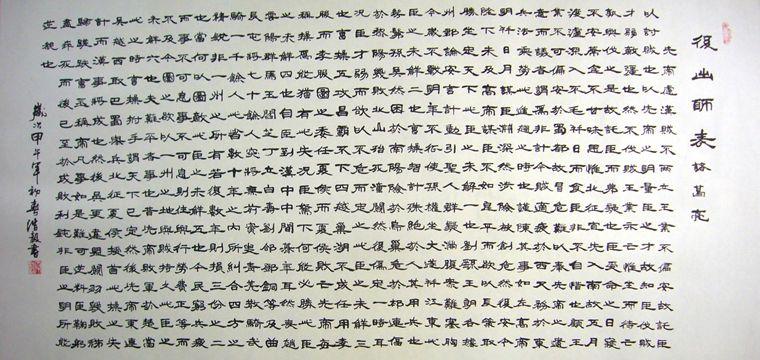 後出師表 諸葛亮
先帝慮漢賊不兩立王業不偏安故託臣
以討賊也以先帝之明量臣之才故知臣伐賊
才弱敵強也然不伐賊王業亦亡惟坐而待亡
孰與伐之是故託臣而弗疑也臣受命之日寢
不安席食不甘味思惟北征宜先入南故五月渡瀘
深入不毛并日而食臣非不自惜也顧王
業不可偏安於蜀都故冒危難以奉先帝之遺
意而議者謂為非計今賊適疲於西又務於東
兵法乘勞此進趨之時也謹陳其事如左高帝
明並日月謀臣淵深然涉險被創危然後安今
陛下未及高帝謀臣不如良平而欲以長策取
勝坐定天下此臣之未解一也劉繇王朗各據
州郡論安言計動引聖人群疑滿腹眾難塞胸
今歲不戰明年不征使孫權坐大遂并江東此
臣之未解二也曹操智計殊絕於人其用兵也
仿佛孫吳然困於南陽險於烏巢危於祁連偪
於黎陽幾敗北山殆死潼關然後偽定一時耳
況臣才弱而欲以不危而定之此臣之未解三
也曹操五攻昌霸不下四越巢湖不成任用李
服而李服圖之委任夏侯而夏侯敗亡先帝每
稱操為能猶有此失況臣駑下何能必勝此臣
之未解四也自臣到漢中中間期年耳然喪趙
雲陽群馬玉閻芝丁立白壽劉郃鄧銅等及曲
長屯將七十餘人突將無前賨叟青羌散騎武
騎一千餘人此皆數十年之內所糾合四方之
精銳非一州之所有若復數年則損三分之二
也當何以圖敵此臣之未解五也今民窮兵疲
而事不可息事不可息則住與行勞費正等
而不及今圖之欲以一州之地與賊持久此臣之
未解六也夫難平者事也昔先帝敗軍於楚當
此時曹操拊手謂天下以定然後先帝東連
吳越西取巴蜀舉兵北征夏侯授首此操之失
計而漢事將成也然後吳更違盟關羽毀敗秭
歸蹉跌曹丕稱帝凡事如是難可逆見臣鞠躬
盡瘁死而後已至於成敗利鈍非臣之明所能
逆睹也
歲次甲午年初春浩毅書